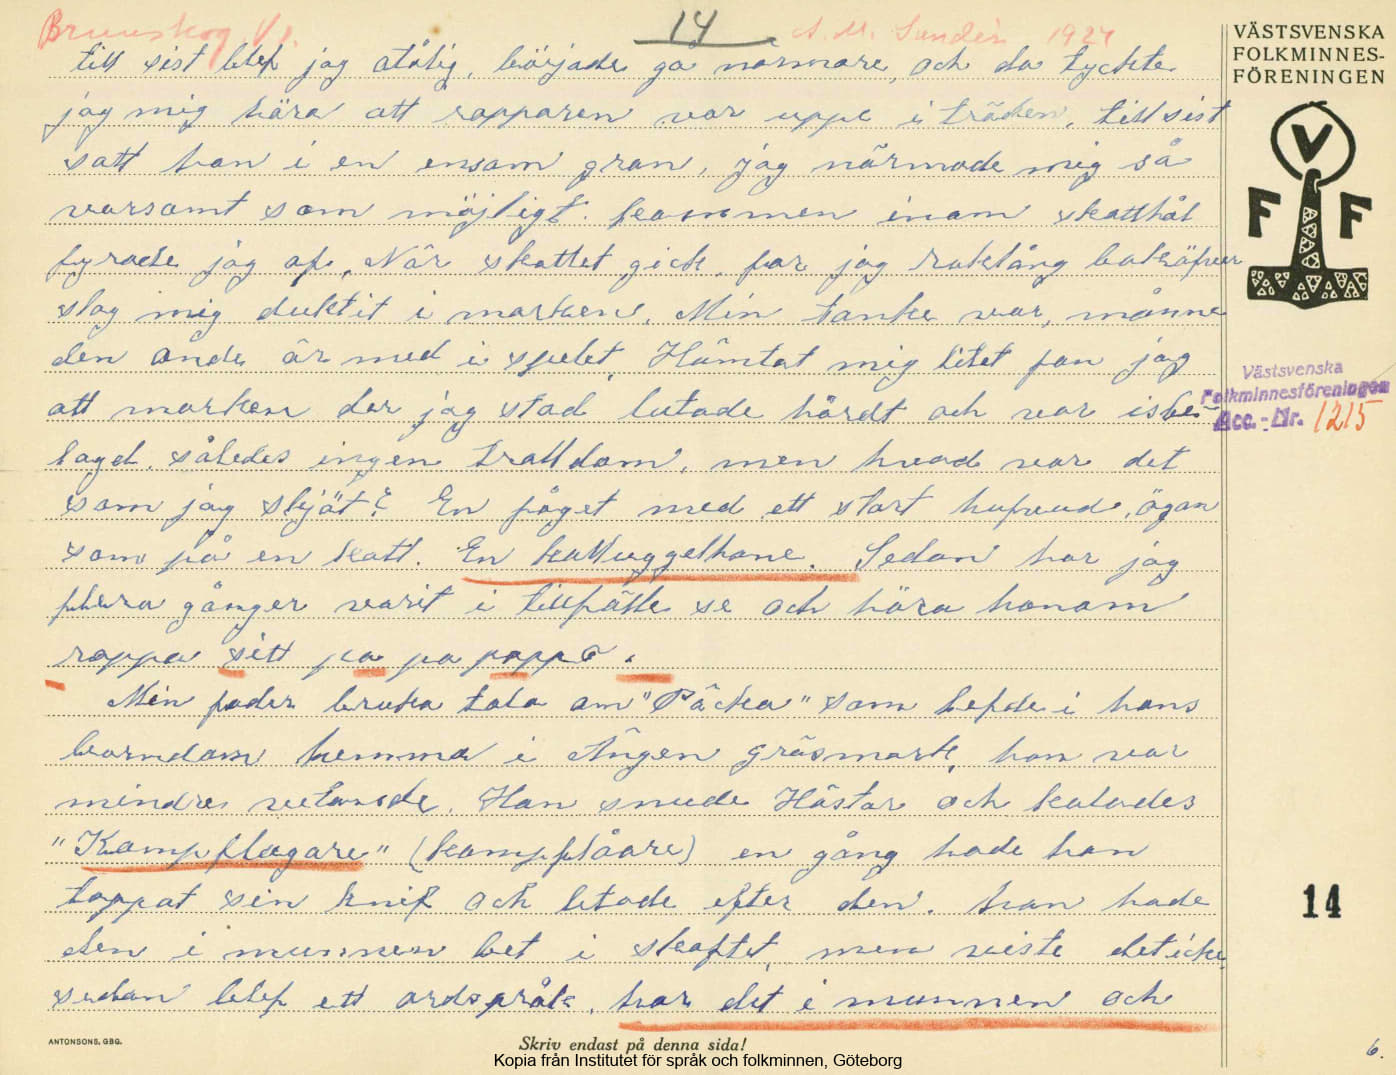 Brunskog Vl.
14
A. M. Sandén 1927
till sist blef jag otålig, började ga narmare, och da tyckte
jag mig höra att ropparen var uppe i träden, till sist
satt han i en ensam gran, jag närmade mig så
varsamt som möjligt. kommen inom skatthål
fyrade jag af, När skattet gick, for jag raklång baköfver
slog mig duktit i marken. Min tanke var, månne
den onde är med i spelet, Hämtat mig litet fan jag
att marken der jag stod lutade hårdt och var isbe-
lagd, således ingen trolldom, men hvad var det
som jag skjöt? En fågel med ett stort hufvud, ögon
som på en katt. En kattuggelhane. Sedan har jag
flera gånger varit i tillfälle se och höra honom
roppa sitt po po poppo.
Min fader bruka tala om "Päcka" som lefde i hans
barndom hemma i Ängen Gräsmark, han var
mindre vetande. Han snude Hästar och kalades
"Kampflagare" (kampflåare) en gång hade han
tappat sin knif och letade efter den. han hade
den i munnen bet i skaftet, men viste det icke,
sedan blef ett ordspråk, har det i munnen och
VÄSTSVENSKA
FOLKMINNES-
FÖRENINGEN
V
F F
Västsvenska
Folkminnesföreningen
Acc.-Nr. 1215
14
6.
ANTONSONS, GBG.
Skriv endast på denna sida!
Kopia från Institutet för språk och folkminnen, Göteborg